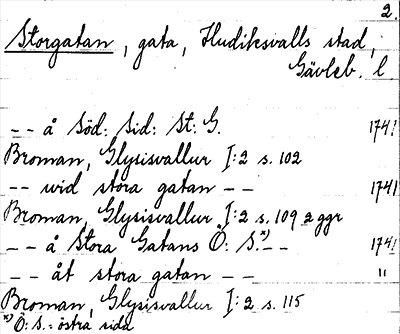 2.
Storgatan, gata, Hudiksvalls stad,
Gävleb. l
-- å Söd: Sid: St: G. 1741
Broman, Glysisvallur I:2 s. 102
-- wid stora gatan -- 1741
Broman, Glysisvallur I:2 s. 109 2 ggr
-- å Stora Gatans Ö: S.x) -- 1741
-- åt stora gatan -- "
Broman, Glysisvallur I:2 s. 115
x) Ö: S. = östra sida